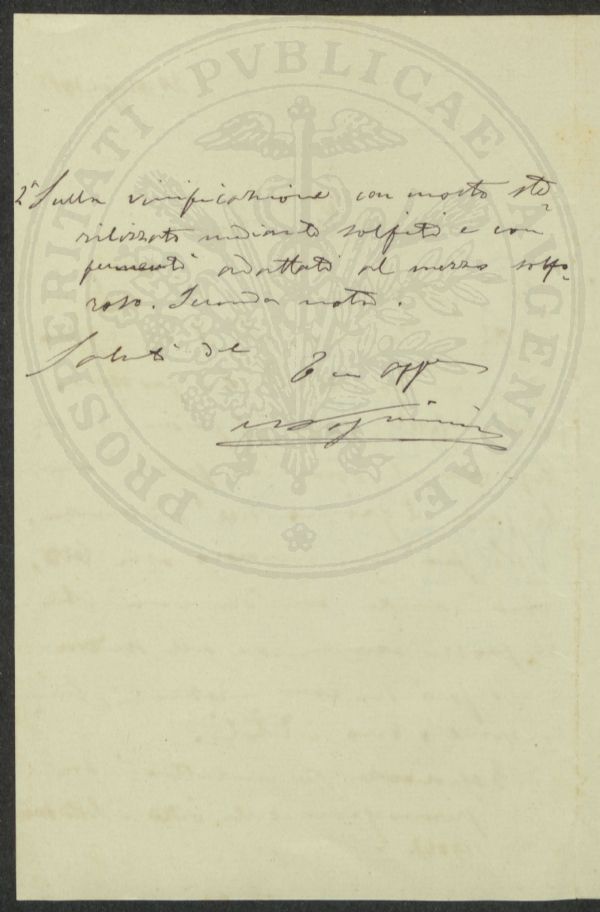 PROSPERITATI PVBLICAE AVGENDAE
2ª Sulla vinificazione con mosto ste-
rilizzato mediante solfiti e con
fermenti adattati al mezzo solfo-
roso. Seconda nota.
Saluti del
Tuo aff